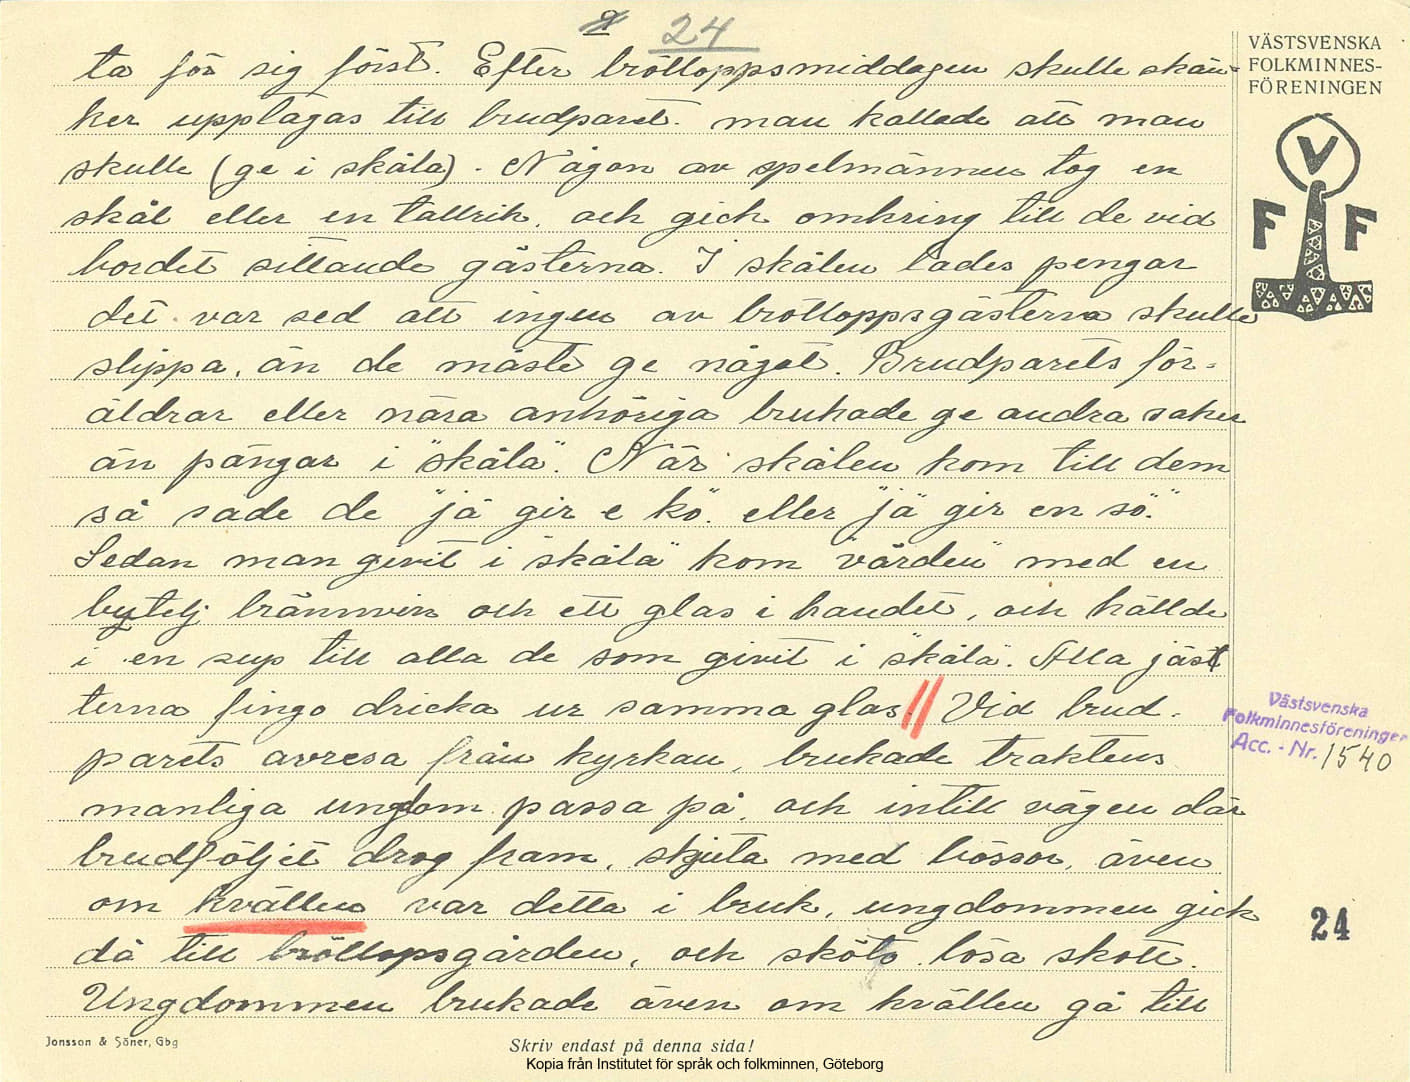 24
VÄSTSVENSKA
FOLKMINNES-
FÖRENINGEN
V
F F
ta för sig först. Efter brölloppsmiddagen skulle skän-
ker upptagas till brudparet. man kallade att man
skulle (ge i skåla). Någon av spelmännen tog en
skål eller en tallrik, och gick omkring till de vid
bordet sittande gästerna. I skålen lades pengar
det var sed att ingen av brölloppsgästerna skulle
slippa, än de måste ge något. Brudparets för-
äldrar eller nära anhöriga brukade ge andra saker
än pängar i "skåla". När skålen kom till dem
så sade de "jä gir e kö". eller "jä gir en sö".
Sedan man givit i "skåla" kom "värden" med en
bytelj brännvin och ett glas i handet, och hällde
i en sup till alla de som givit i "skåla". Alla jäs
terna fingo dricka ur samma glas // Vid brud-
parets avresa från kyrkan, brukade traktens
manliga ungdom passa på, och intill vägen där
brudföljet drog fram, skjuta med bössor, även
om kvällen var detta i bruk, ungdommen gick
då till bröllopsgården, och sköto lösa skott.
Ungdommen brukade även om kvällen gå till
Västsvenska
Folkminnesföreningen
Acc. - Nr. 1540
24
Jonsson & Söner, Gbg
Skriv endast på denna sida!
Kopia från Institutet för språk och folkminnen, Göteborg